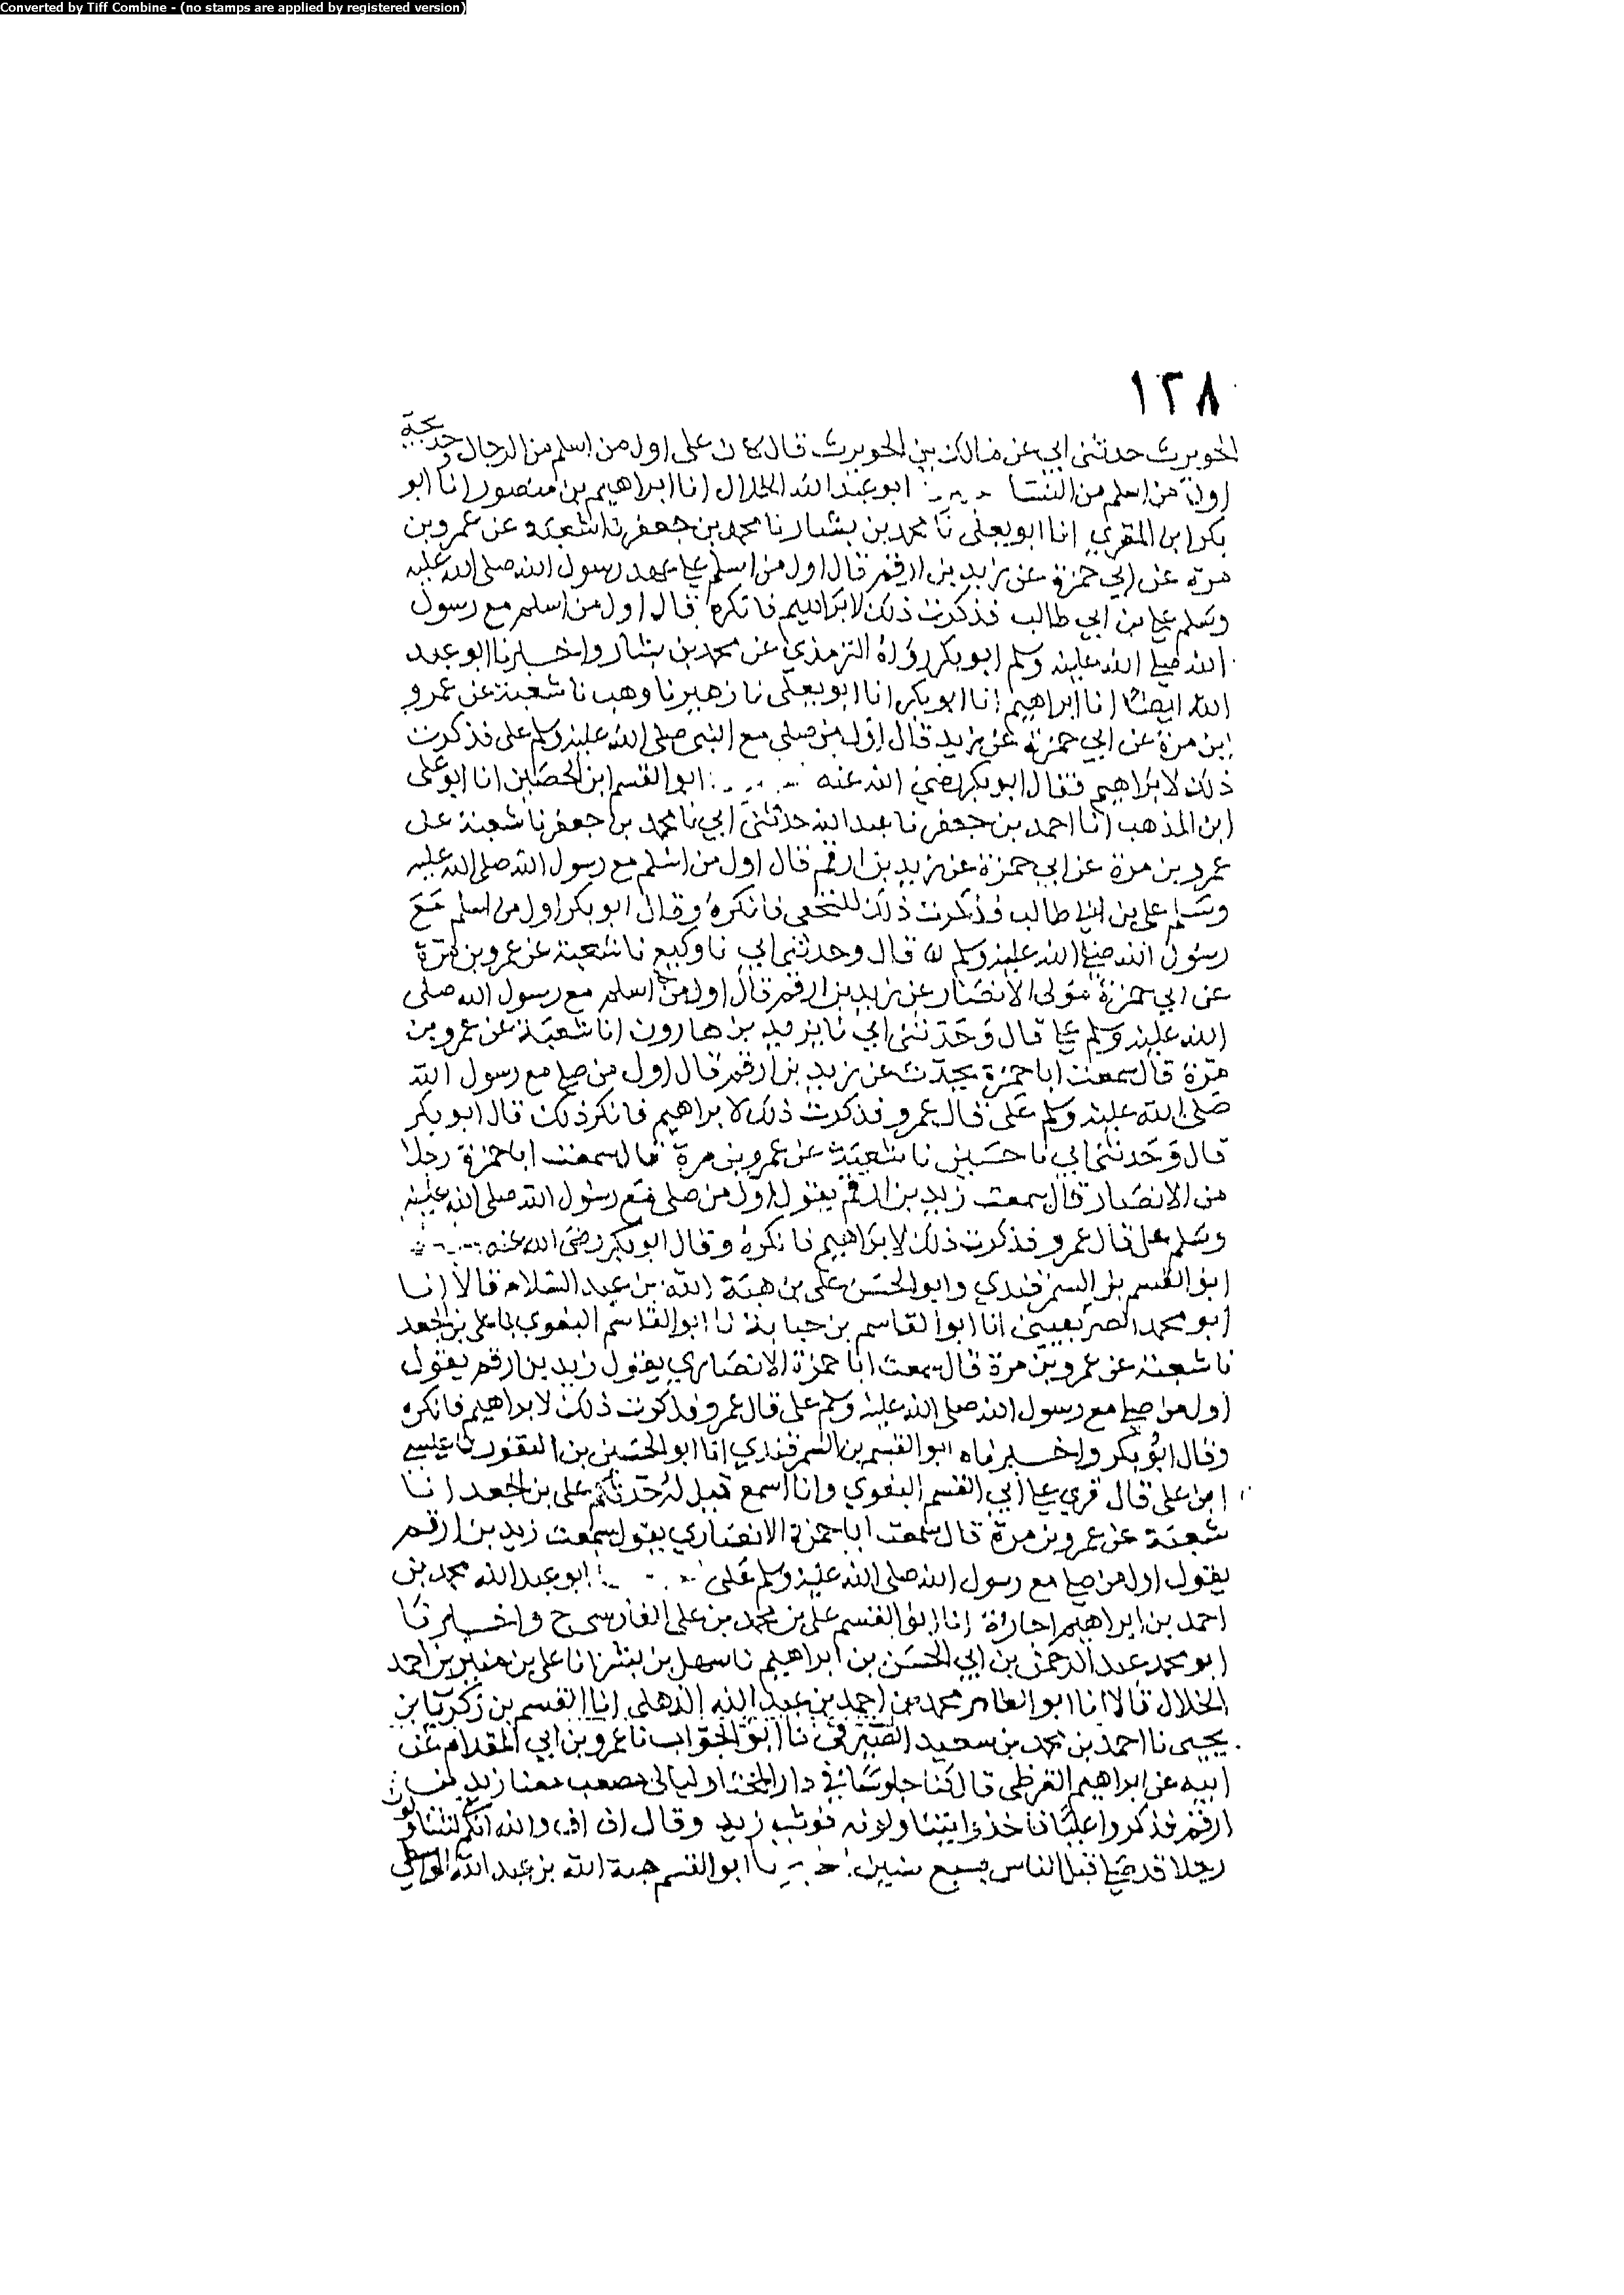 Converted by Tiff Combine - (no stamps are applied by registered version)
١٢٨
الحويرث حدثني ابي عن مالك بن الحويرث قال كان علي اول من اسلم من الرجال وخديجة
اول من اسلم من النسا ابو عبد الله الخلال انا ابراهيم بن منصور انا ابو
بكر ابن المقري انا ابو يعلى نا محمد بن بشار نا محمد بن جعفر نا شعبة عن عمرو بن
مرة عن ابي حمزة عن زيد بن ارقم قال اول من اسلم على عهد رسول الله صلى الله عليه
وسلم علي بن ابي طالب فذكرت ذلك لابراهيم فانكره قال اول من اسلم مع رسول
الله صلى الله عليه وسلم ابو بكر رواه الترمذي عن محمد بن بشار واخبرنا ابو عبد
الله ايضا انا ابراهيم انا ابو بكر انا ابو يعلى نا زهير نا وهب نا شعبة عن عمرو
ابن مرة عن ابي حمزة عن زيد قال اول من صلى مع النبي صلى الله عليه وسلم علي فذكرت
ذلك لابراهيم فقال ابو بكر رضي الله عنه ابو القسم ابن الحصين انا ابو علي
ابن المذهب انا احمد بن جعفر نا عبد الله حدثني ابي نا محمد بن جعفر نا شعبة عن
عمرو بن مرة عن ابي حمزة عن زيد بن ارقم قال اول من اسلم مع رسول الله صلى الله عليه
وسلم علي بن ابي طالب فذكرت ذلك للنخعي فانكره وقال ابو بكر اول من اسلم مع
رسول الله صلى الله عليه وسلم قال وحدثني ابي نا وكيع نا شعبة عن عمرو بن مرة
عن ابي حمزة مولى الانصار عن زيد بن ارقم قال اول من اسلم مع رسول الله صلى
الله عليه وسلم علي قال وحدثني ابي نا يزيد بن هارون انا شعبة عن عمرو بن
مرة قال سمعت ابا حمزة يحدث عن زيد بن ارقم قال اول من صلى مع رسول الله
صلى الله عليه وسلم علي قال عمرو فذكرت ذلك لابراهيم فانكر ذلك قال ابو بكر
قال وحدثني ابي نا حسين نا شعبة عن عمرو بن مرة قال سمعت ابا حمزة رجلا
من الانصار قال سمعت زيد بن ارقم يقول اول من صلى مع رسول الله صلى الله عليه
وسلم علي قال عمرو فذكرت ذلك لابراهيم فانكره وقال ابو بكر رضي الله عنه
ابو القسم بن السمرقندي وابو الحسن علي بن هبة الله بن عبد السلام قالا انا
ابو محمد الصريفيني انا ابو القاسم بن حبابة نا ابو القاسم البغوي نا علي بن الجعد
نا شعبة عن عمرو بن مرة قال سمعت ابا حمزة الانصاري يقول زيد بن ارقم يقول
اول من صلى مع رسول الله صلى الله عليه وسلم علي قال عمرو فذكرت ذلك لابراهيم فانكره
وقال ابو بكر واخبرناه ابو القسم بن السمرقندي انا ابو الحسين بن النقور نا عيسى
ابن علي قال قري على ابي القسم البغوي وانا اسمع قيل له حدثكم علي بن الجعد انا
شعبة عن عمرو بن مرة قال سمعت ابا حمزة الانصاري يقول سمعت زيد بن ارقم
يقول اول من صلى مع رسول الله صلى الله عليه وسلم علي ابو عبد الله محمد بن
احمد بن ابراهيم اجازة انا ابو القسم علي بن محمد بن علي الفارسي ح واخبرنا
ابو محمد عبد الرحمن بن ابي الحسن بن ابراهيم نا سهل بن بشر انا علي بن منير بن احمد
الخلال قالا انا ابو الطاهر محمد بن احمد بن عبد الله الذهلي انا القسم بن زكريا بن
يحيى نا احمد بن محمد بن سعيد الصيرفي نا ابو الجواب نا عمرو بن ابي المقدام عن
ابيه عن ابراهيم القرظي قال كنا جلوسا في دار المختار ليالي مصعب معنا زيد بن
ارقم فذكروا عليا فاخذوا يتناولونه فوثب زيد وقال اف اف والله انكم لتتناولون
رجلا قد صلى قبل الناس بسبع سنين ابو القسم هبة الله بن عبد الله الواسطي